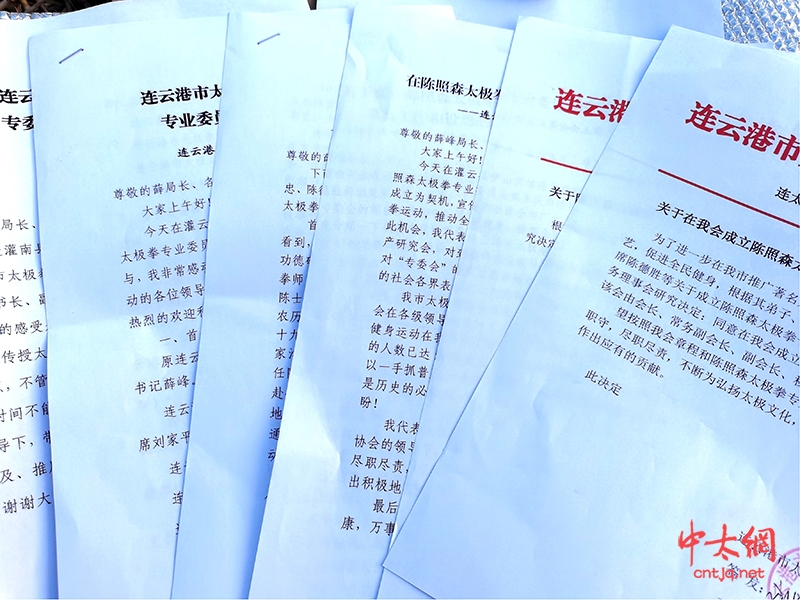 连云
专委
局长、
灌南县
太极拳
书长、副
的感受
传授太
不管
时间不能
导下，带
及、推
谢谢大
连云港市太
专业委员
连云港
尊敬的薛局长、各
大家上午好！
今天在灌云
太极拳专业委员
与，我非常感动
动的各位领导
热烈的欢迎和
一、首
原连云
书记薛峰
连云
席刘家平
连
连
尊敬的薛
下面
忠、陈德
太极拳
首
看到，
功德
拳师
陈士
农历
十九
家沟
任
赴
地
通
动
在陈照森太极拳
——连云
尊敬的薛峰局长、
大家上午好！
今天在灌云
照森太极拳专业
成立为契机，宣传
拳运动，推动全
此机会，我代表
产研究会，对
对“专委会”的
的社会各界表
我市太极
会在各级领导
健身运动在我
的人数已达
以一手抓普
是历史的必
盼！
我代表
协会的领导
尽职尽责，
出积极地
最后
康，万事
连云港
关于
根
究决定
连云港市
连太
关于在我会成立陈照森太
为了进一步在我市推广著名
艺，促进全民健身，根据其弟子、
席陈德胜等关于成立陈照森太极拳
务理事会研究决定：同意在我会成立
该会由会长、常务副会长、副会长、秘
望按照我会章程和陈照森太极拳专
职守，尽职尽责，不断为弘扬太极文化，
作出应有的贡献。
此决定
连云港市太
签发：
中太網
cntjq.net